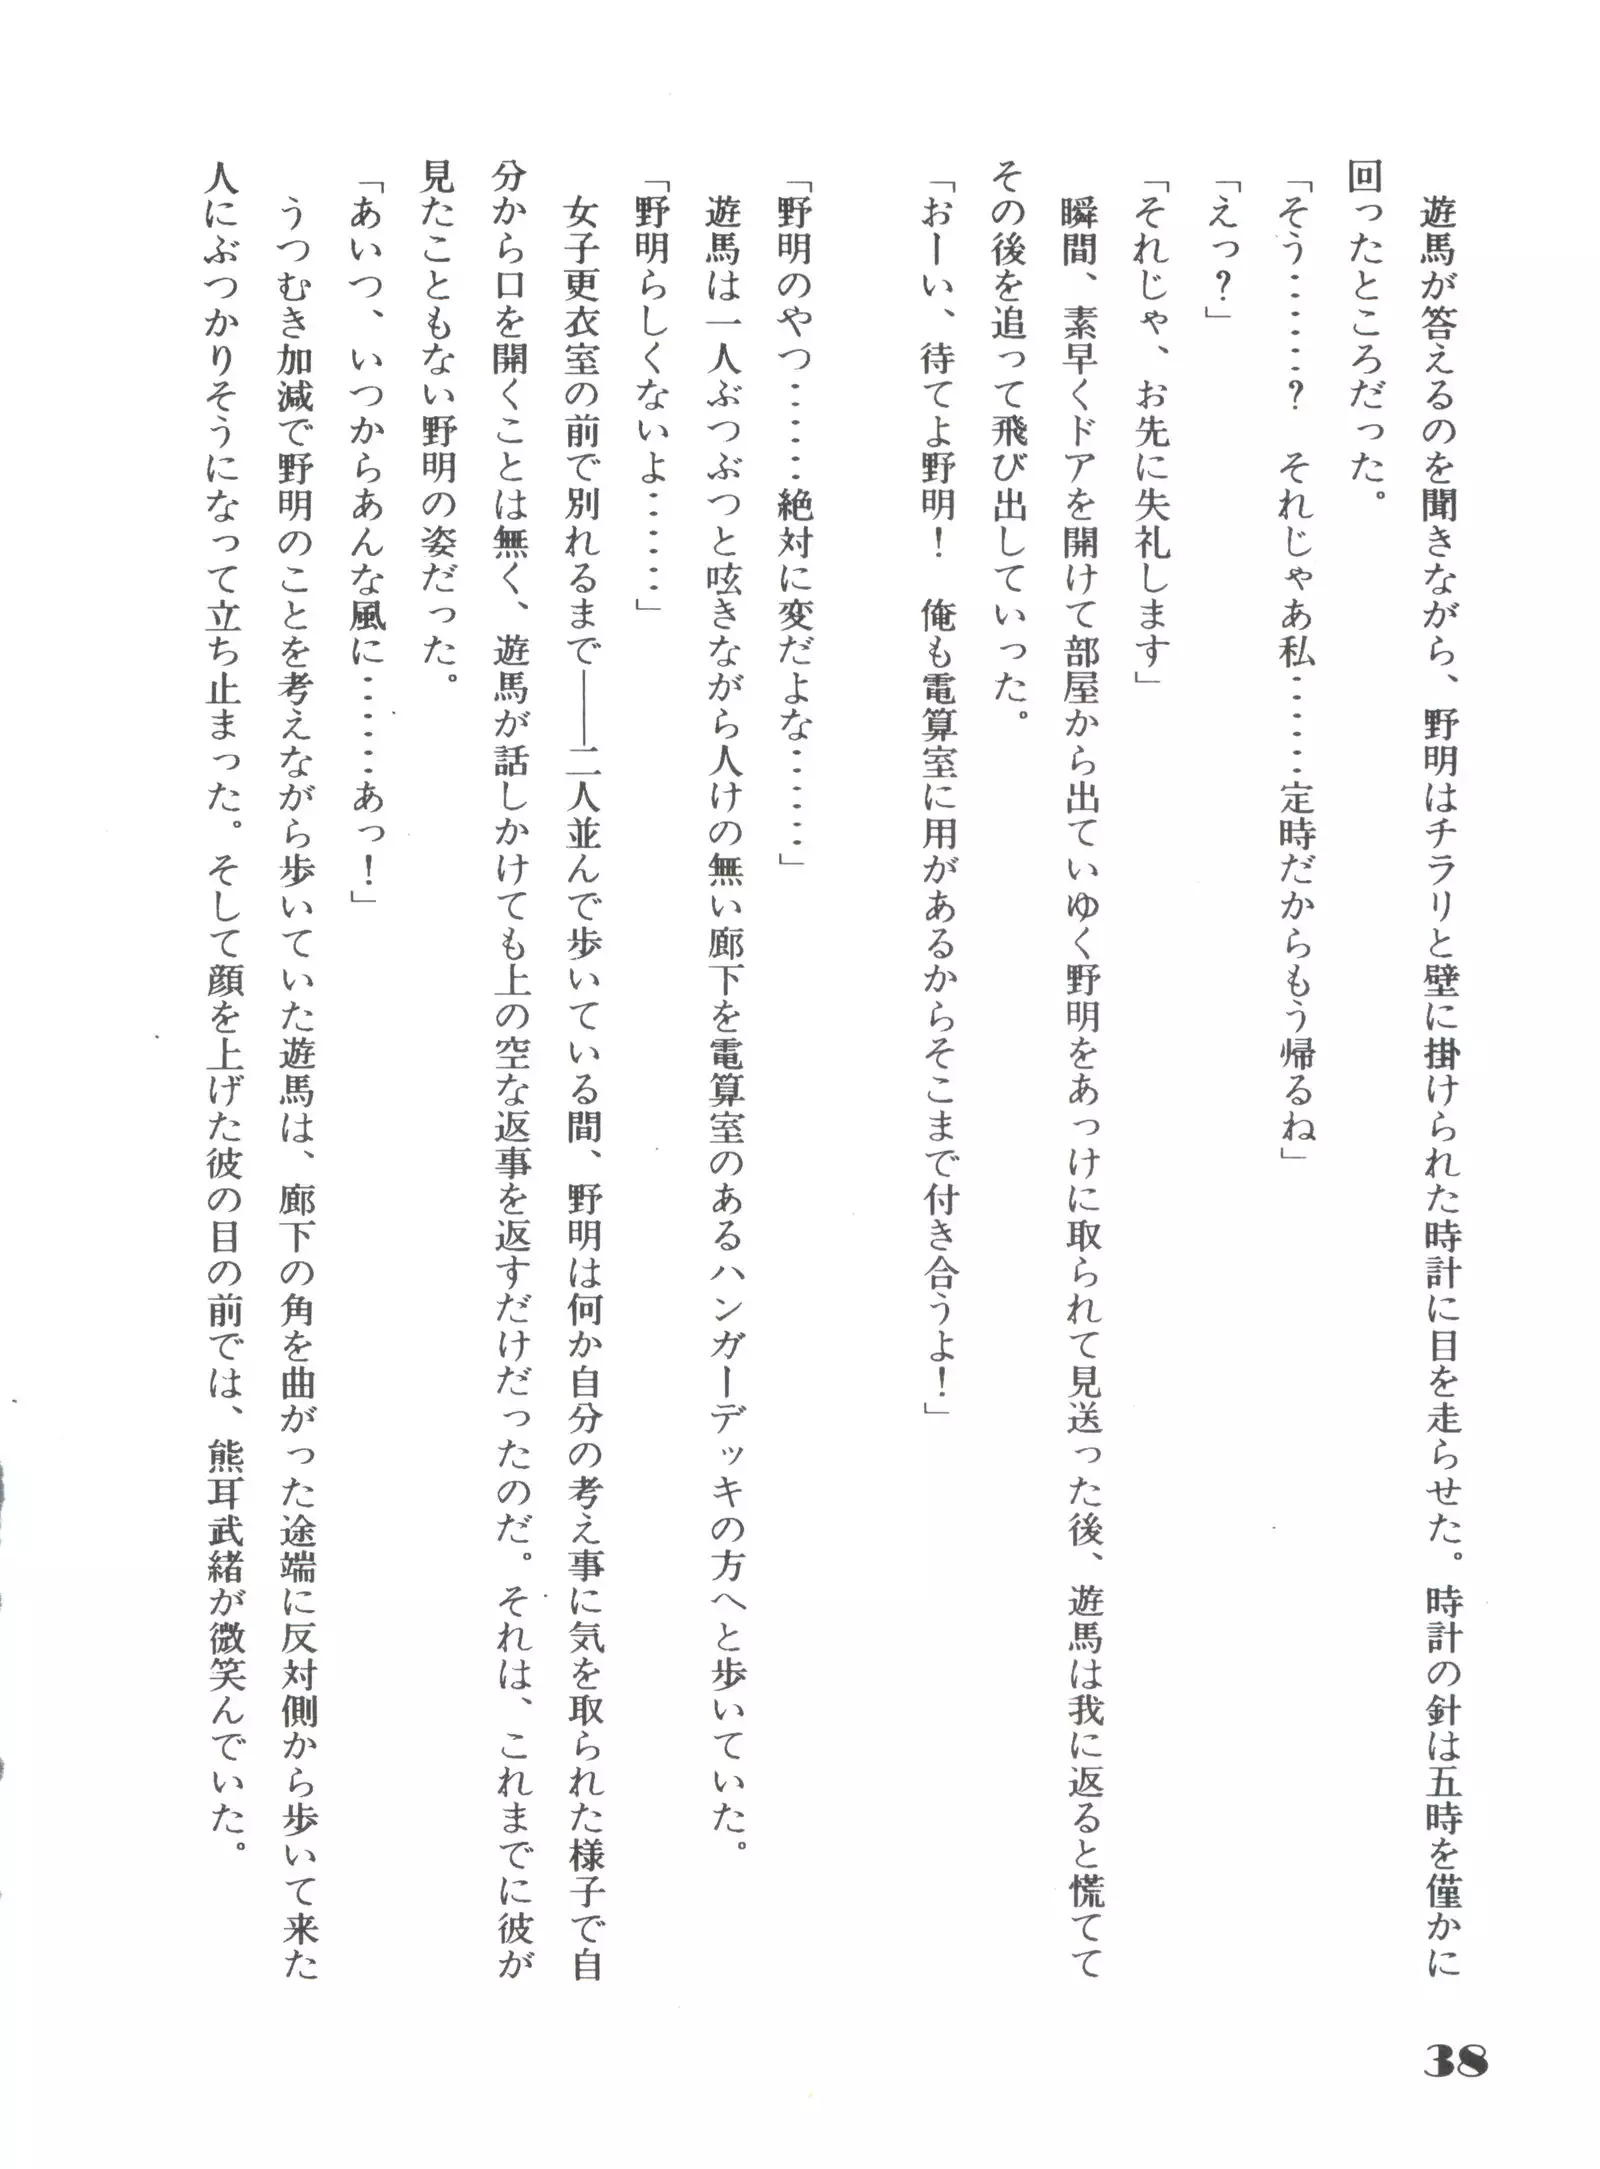 遊馬が答えるのを聞きながら、野明はチラリと壁に掛けられた時計に目を走らせた。時計の針は五時を僅かに
回ったところだった。
「そう……？　それじゃあ私……定時だからもう帰るね」
「えっ？」
「それじゃ、お先に失礼します」
　瞬間、素早くドアを開けて部屋から出ていゆく野明をあっけに取られて見送った後、遊馬は我に返ると慌てて
その後を追って飛び出していった。
「おーい、待てよ野明！　俺も電算室に用があるからそこまで付き合うよ！」
「野明のやつ……絶対に変だよな……」
　遊馬は一人ぶつぶつと呟きながら人けの無い廊下を電算室のあるハンガーデッキの方へと歩いていた。
「野明らしくないよ……」
　女子更衣室の前で別れるまで――二人並んで歩いている間、野明は何か自分の考え事に気を取られた様子で自
分から口を開くことは無く、遊馬が話しかけても上の空な返事を返すだけだったのだ。それは、これまでに彼が
見たこともない野明の姿だった。
「あいつ、いつからあんな風に……あっ！」
　うつむき加減で野明のことを考えながら歩いていた遊馬は、廊下の角を曲がった途端に反対側から歩いて来た
人にぶつかりそうになって立ち止まった。そして顔を上げた彼の目の前では、熊耳武緒が微笑んでいた。
38